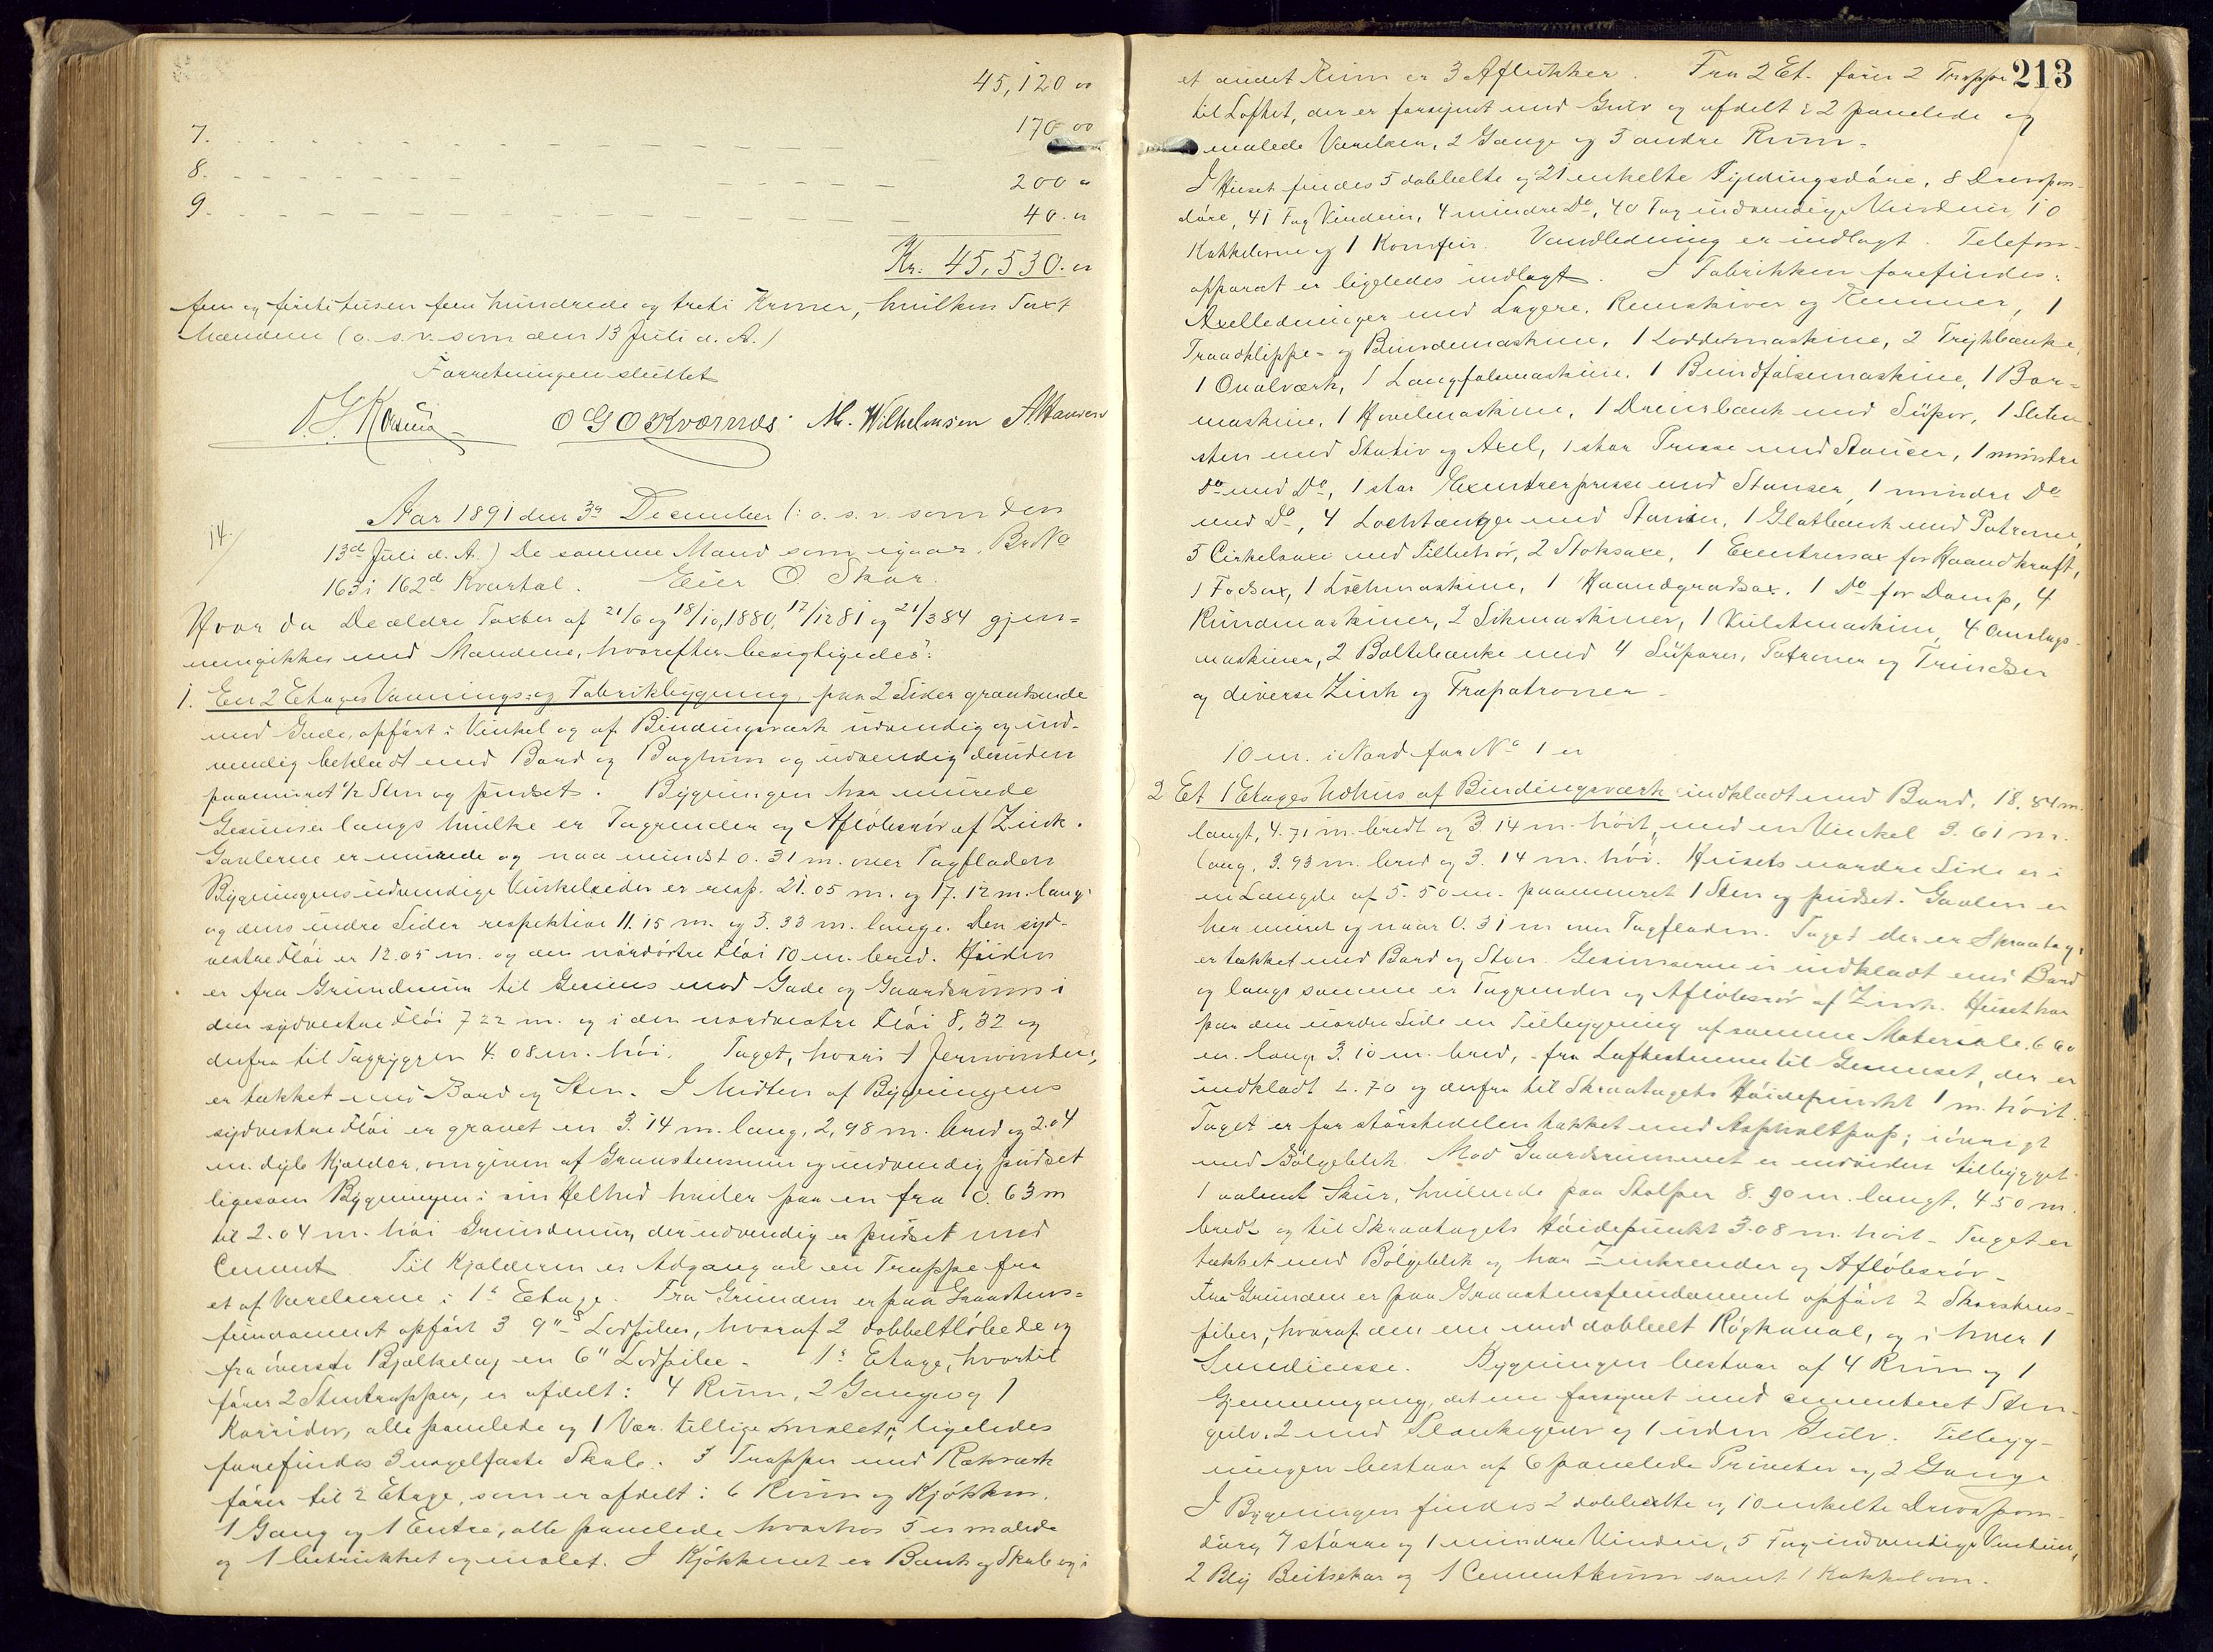 45,120 00
7. 170 00
8. 200 "
9. 40. "
Kr. 45,530. "
fem og førtitusen fem hundrede og treti Kroner, hvilken Taxt
Mændene (o. s. v. som den 13 Juli d. A.)
Forretningen sluttet
O G O Kværnæs. M. Wilhelmsen A. Hansen
14/ Aar 1891 den 3die December (: o. s. v. som den
13d Juli d. A.) De samme Mænd som igaar. Br No
163 i 162d Kvartal. Eier O. Skar.
Hvor da De ældre Taxter af 21/6 og 18/10, 1880, 17/12 81 og 21/3 84 gjen-
nemgikkes med Mændene, hvorefter besigtigedes:
1. En 2 Etages Vaanings- og Fabrikbygning, paa 2 Sider grændsende
mod Gade, opført i Vinkel og af Bindingsværk udvendig og ind-
vendig beklædt med Bord og Baghun og udvendig desuden
paamuret 1/2 Sten og pudset. Bygningen har murede
Gesimser langs hvilke er Tagrender og Afløbsrør af Zink.
Gavlerne er murede og naa mindst 0.31 m. over Tagfladen
Bygningens udvendige Vinkelsider er resp. 21.05 m. og 17.12 m. lange
og dens indre Sider respektive 11.15 m. og 5.33 m. lange. Den syd-
vestre Fløi er 12.05 m. og den nordøstre Fløi 10 m. bred. Høiden
er fra Grundmur til Gesims mod Gade og Gaardsrum i
den sydvestre Fløi 7 22 m. og i den nordvestre Fløi 8,32 og
derfra til Tagryggen 4.08 m. høi. Taget, hvori 1 Jernvindu,
er tækket med Bord og Sten. I Midten af Bygningens
sydvestre Fløi er gravet en 3.14 m. lang, 2,98 m. bred og 2.04
m. dyb Kjælder, omgiven af Graastensmur og indvendig pudset
ligesom Bygningen i sin Helhed hviler paa en fra 0.63 m
til 2.04 m. høi Grundmur, der udvendig er pudset med
Cement. Til Kjælderen er Adgang ad en Trappe fra
et af Værelserne i 1ste Etage. Fra Grunden er paa Graastens-
fundament opført 3 9" Lodpiber, hvoraf 2 dobbeltløbede og
fra øverste Bjælkelag en 6" Lodpibe. 1ste Etage, hvortil
fører 2 Stentrapper, er afdelt i 4 Rum, 2 Gange og 1
Korridor, alle panelede og 1 Vær. tillige malet; ligeledes
forefindes 3 nagelfaste Skabe. 3 Trapper med Rækværk
fører til 2 Etage, som er afdelt i 6 Rum og Kjøkken,
1 Gang og 1 Entre, alle panelede hvorhos 5 er malede
og 1 betrukket og malet. I Kjøkkenet er Bænk og Skab og i
213
et andet Rum er 3 Aflukker. Fra 2 Et. fører 2 Trapper
til Loftet, der er forsynet med Gulv og afdelt i 2 panelede og
malede Værelser, 2 Gange og 5 andre Rum.
I Huset findes 5 dobbelte og 21 enkelte Fyldingsdøre, 8
døre, 41 Fag Vinduer, 4 mindre Do, 40 Fag indvendige Vinduer 10
Kakkelovne og 1 Komfur. Vandledning er indlagt. Telefon-
apparat er ligeledes indlagt. I Fabrikken forefindes:
Axelledninger med Lagere, Remskiver og Remmer, 1
Traadklippe- og Bindemaskine, 1 Loddemaskine, 2 Trykbænke,
1 Ovalværk, 1 Langfalsmaskine, 1 Bundfalsemaskine, 1 Bor-
maskine, 1 Høvelmaskine, 1 Dreiebænk med Süpor, 1 Slibe-
sten med Stativ og Axel, 1 stor Presse med Stanser, 1 mindre
Do med Do, 1 stor Exenterpresse med Stanser, 1 mindre Do
med Do, 4 Lochtænger med Stanser, 1 Glatbænk med Patroner,
5 Cirkelsaxe med Tilbehør, 2 Stoksaxe, 1 Exentersax for Haandkraft,
1 Fodsax, 1 Lochmaskine, 1 Haandgradsax. 1 Do for Damp, 4
Rundmaskiner, 2 Sikmaskiner, 1 Vulstmaskine, 4 Omslags-
maskiner, 2 Boltebænke med 4 Süporer, Patroner og Trindser
og diverse Zink og Træpatroner.
10 m. i Nord for No 1 er
2 Et 1 Etages Udhus af Bindingsværk indklædt med Bord, 18.84 m.
langt, 4.71 m. bredt og 3.14 m. høit, med en Vinkel 3.61 m.
lang, 3.93 m. bred og 3.14 m. høi. Husets nordre Side er i
en Længde af 5.50 m. paamuret 1 Sten og pudset. Gavlen er
her muret og naar 0.31 m over Tagfladen. Taget der er Skraatag,
er tækket med Bord og Sten. Gesimserne er indklædt med Bord
og langs samme er Tagrender og Afløbsrør af Zink. Huset har
paa den nordre Side en Tilbygning af samme Materiale. 6 60
m. lang 3.10 m. bred, fra Loftestuene til Gesimset, der er
indklædt 2.70 og derfra til Skraatagets Høidepunkt 1 m. høit.
Taget er for størstedelen tækket med Asphaltpap; iøvrigt
med Bølgeblik. Mod Gaardsrummet er endvidere tilbygget
1 aabent Skur, hvilende paa Stolper 8.90 m. langt, 4 50 m.
bredt og til Skraatagets Høidepunkt 3.08 m. høit. Taget er
tækket med Bølgeblik og har Zinkrender og Afløbsrør.
Fra Grunden er paa Graastensfundament opført 2 Skorstens-
piber, hvoraf den ene med dobbelt Røgkanal, og i hver 1
Smedieesse. Bygningen bestaar af 4 Rum og 1
Gjennemgang, det ene forsynet med cementeret Sten-
gulv, 2 med Plankegulv og 1 uden Gulv. Tilbyg-
ningen bestaar af 6 panelede Priveter og 2 Gange
I Bygningen findes 2 dobbelte og 10 enkelte
døre, 7 større og 1 mindre Vinduer, 5 Fag indvendige Vinduer,
2 Bly Beitsekar og 1 Cementkum samt 1 Kakkelovn.